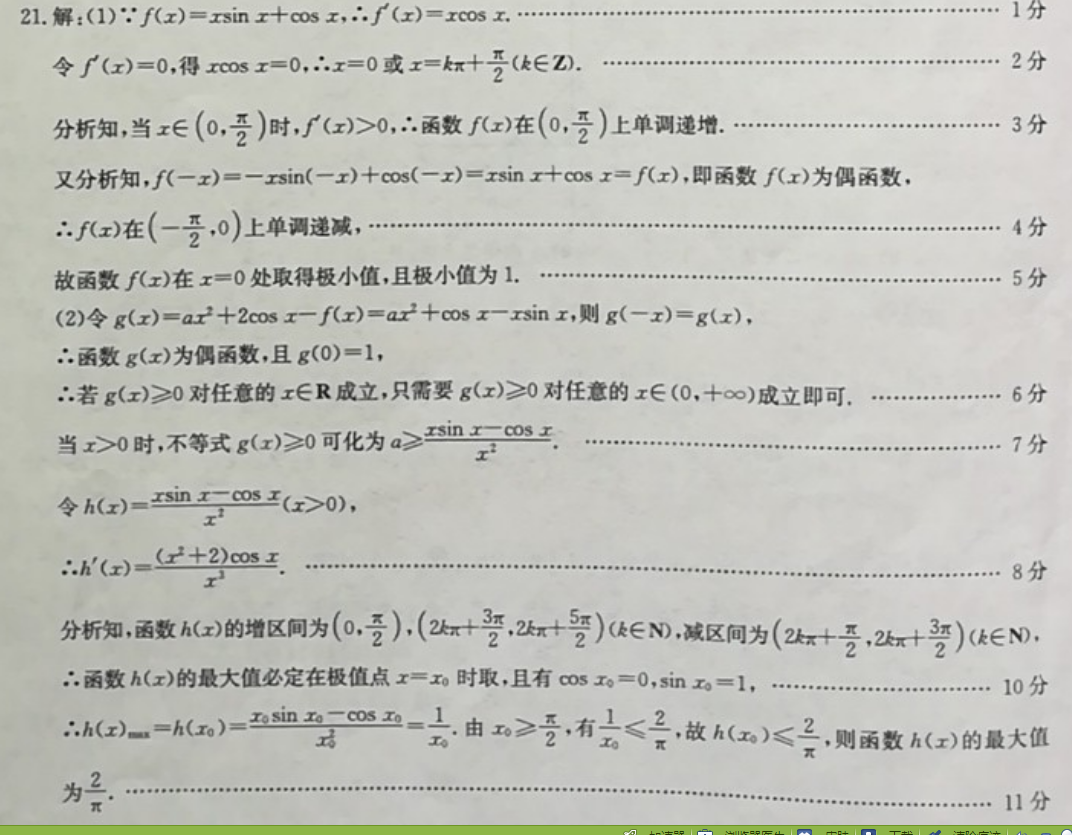 21.解:(1)∵f(x)=xsin x+cos x,∴f′(x)=xcos x. ………… 1分
令 f′(x)=0,得 xcos x=0,∴x=0 或 x=kπ+π/2(k∈Z). ………… 2分
分析知,当 x∈(0,π/2)时,f′(x)>0,∴函数 f(x)在(0,π/2)上单调递增. ………… 3分
又分析知,f(-x)=-xsin(-x)+cos(-x)=xsin x+cos x=f(x),即函数 f(x)为偶函数,
∴f(x)在(-π/2,0)上单调递减, ………… 4分
故函数 f(x)在 x=0 处取得极小值,且极小值为 1. ………… 5分
(2)令 g(x)=ax²+2cos x-f(x)=ax²+cos x-xsin x,则 g(-x)=g(x),
∴函数 g(x)为偶函数,且 g(0)=1,
∴若 g(x)≥0 对任意的 x∈R 成立,只需要 g(x)≥0 对任意的 x∈(0,+∞)成立即可. ………… 6分
当 x>0 时,不等式 g(x)≥0 可化为 a≥(xsin x-cos x)/x². ………… 7分
令 h(x)=(xsin x-cos x)/x²(x>0),
∴h′(x)=(x²+2)cos x/x³. ………… 8分
分析知,函数 h(x)的增区间为(0,π/2),(2kπ+3π/2,2kπ+5π/2)(k∈N),减区间为(2kπ+π/2,2kπ+3π/2)(k∈N),
∴函数 h(x)的最大值必定在极值点 x=x₀ 时取,且有 cos x₀=0,sin x₀=1, ………… 10分
∴h(x)max=h(x₀)=(x₀sin x₀-cos x₀)/x₀²=1/x₀.由 x₀≥π/2,有1/x₀≤2/π,故 h(x₀)≤2/π,则函数 h(x)的最大值
为2/π. ………… 11分